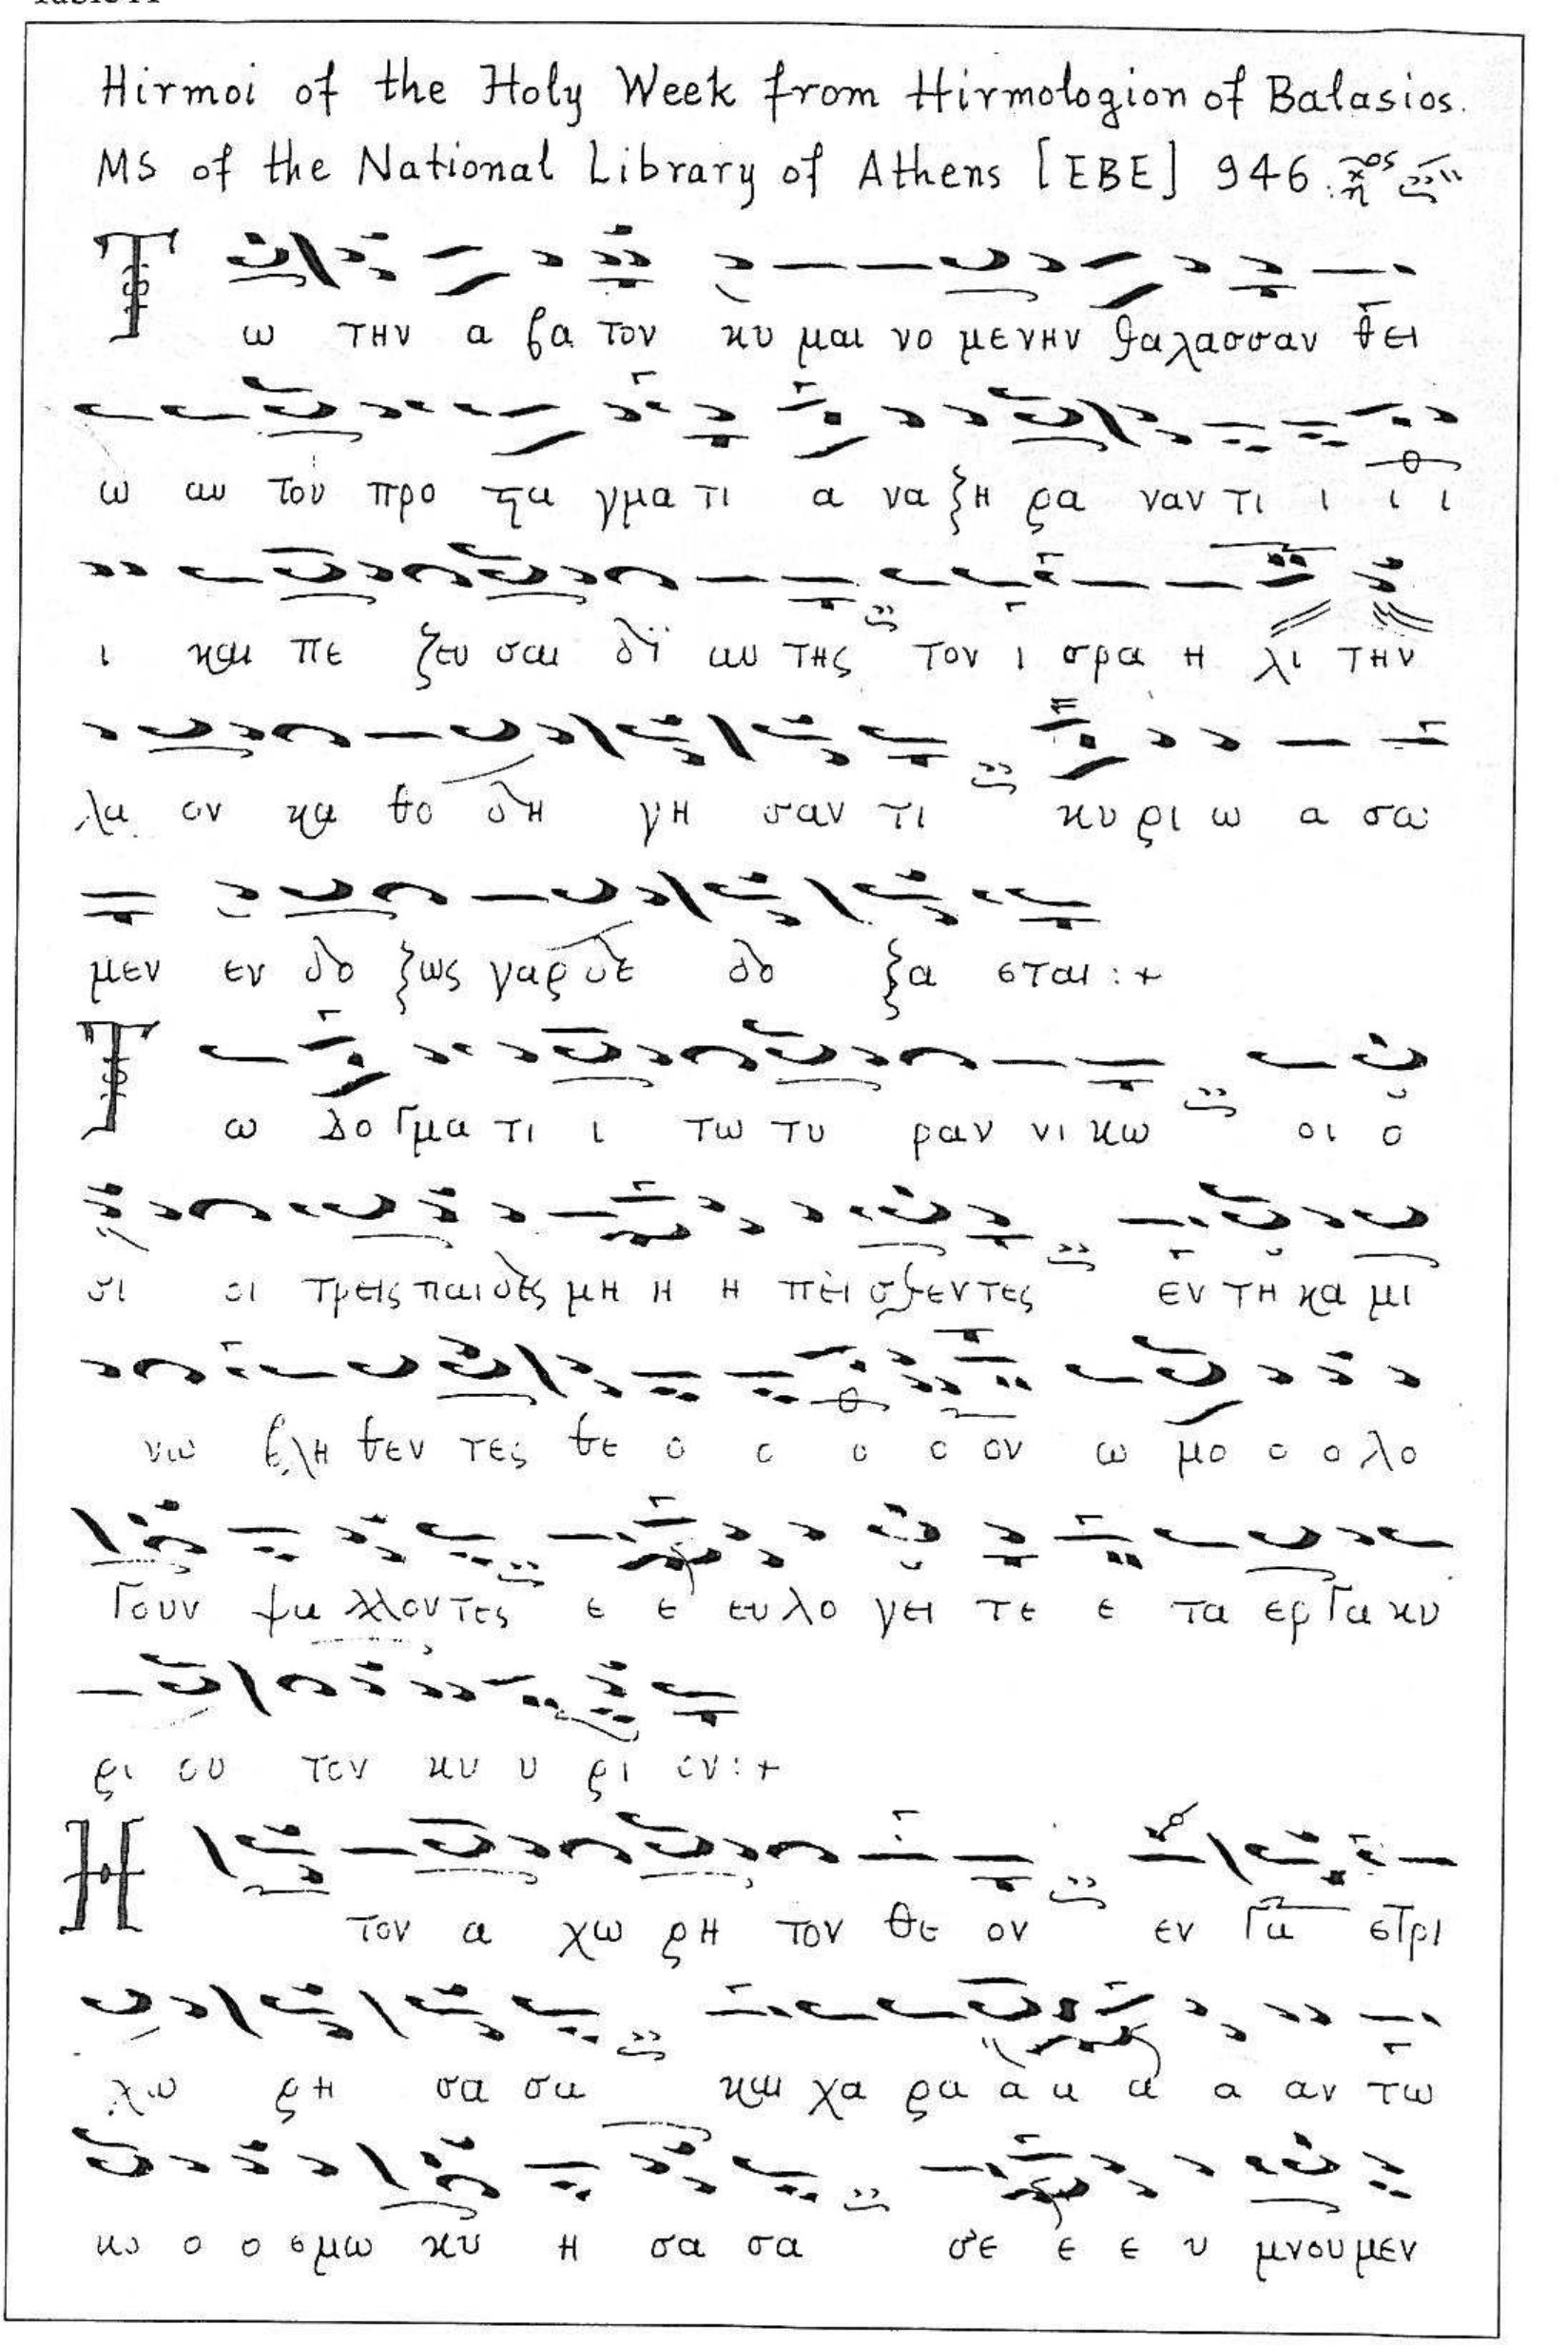 Hirmoi of the Holy Week from Hirmologion of Balasios.
MS of the National Library of Athens [EBE] 946.
Τ ω την α βα τον κυ μαι νο μενην θαλασσαν θει
ω αυ του προ τα γμα τι α να ξη ρα ναν τι ι ι ι
ι και πε ζευ σαι δϊ αυ της τον ι σρα η λι την
λα ον κα θο δη γη σαν τι κυ ρι ω α σω
μεν εν δο ξως γαρ δε δο ξα σται :+
Τ ω δο γμα τι ι τω τυ ραν νι κω οι ο
σι οι τρεις παιδες μη η η πει σθεντες εν τη κα μι
νω βλη θεν τες θε ο ο ο ο ον ω μο ο ο λο
γουν ψα λλοντες ε ε ευ λο γει τε ε τα ερ γα κυ
ρι ου τον κυ υ ρι ον :+
Η τον α χω ρη τον θε ον εν γα στρι
χω ρη σα σα και χα ρα α α α α αν τω
κο ο ο σμω κυ η σα σα σε ε ε υ μνουμεν